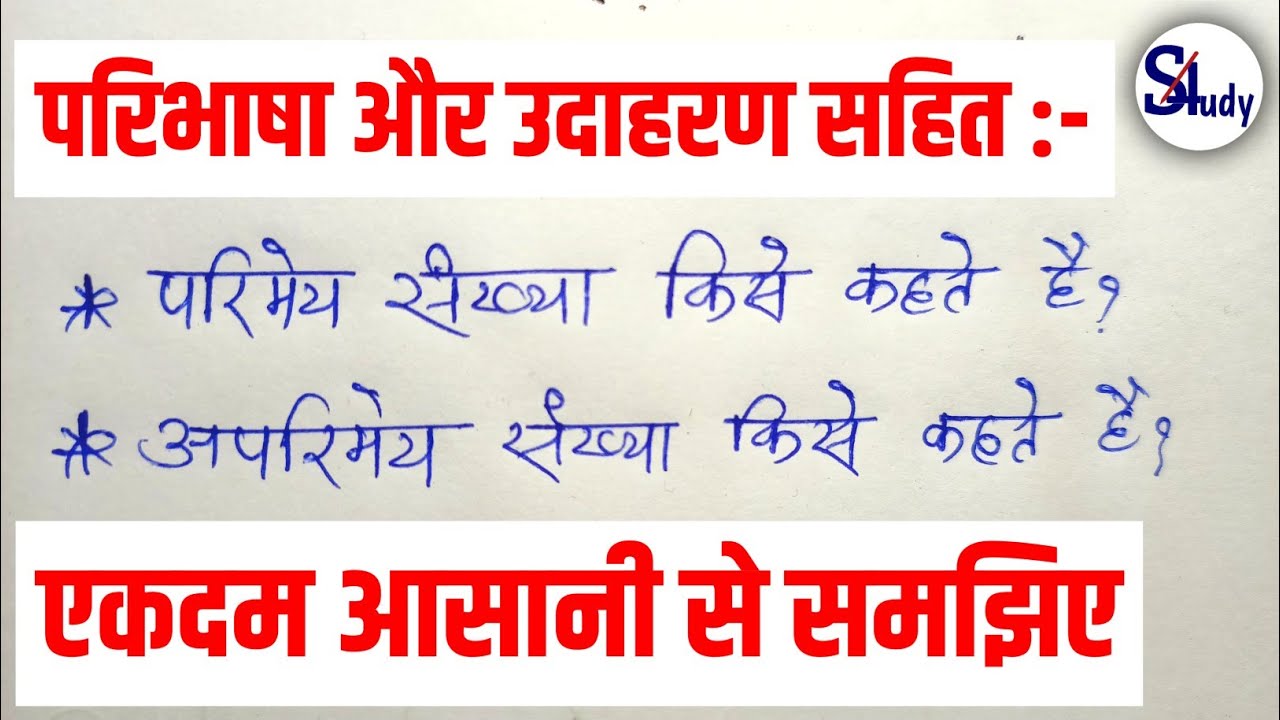 परिभाषा और उदाहरण सहित :-
Study
* परिमेय संख्या किसे कहते है?
* अपरिमेय संख्या किसे कहते है?
एकदम आसानी से समझिए